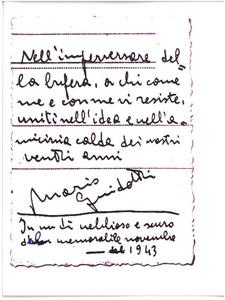 Nell'imperversare del
la bufera, a chi come
me e con me vi resiste,
uniti nell'idea e nell'a
micizia calda dei nostri
ventli anni
Mario
Guidotti
In un dì nebbioso e scuro
memorabile novembre
del 1943